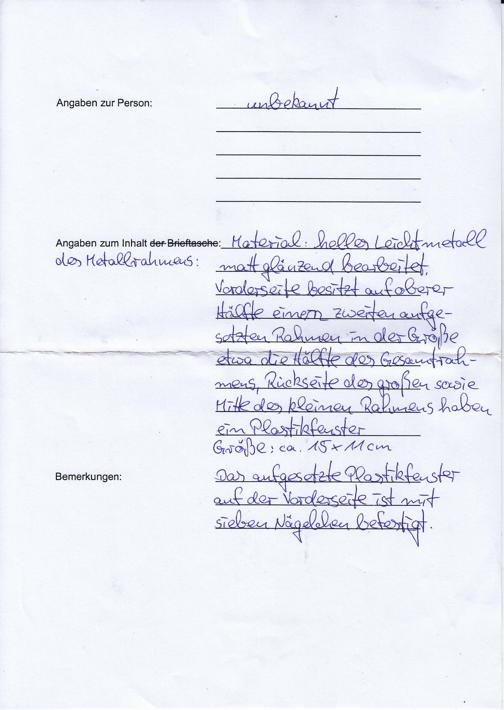 Angaben zur Person: unbekannt
Angaben zum Inhalt der Brieftasche: Material: helles Leichtmetall
des Metallrahmens: matt glänzend bearbeitet.
Vorderseite besitzt auf oberer
Hälfte einern zweiten aufge-
setzten Rahmen in der Größe
etwa die Hälfte des Gesamtrah-
mens, Rückseite des großen sowie
Mitte des kleinen Rahmens haben
ein Plastikfenster
Größe: ca. 15 x 11 cm
Bemerkungen: Das aufgesetzte Plastikfenster
auf der Vorderseite ist mit
sieben Nägelchen befestigt.